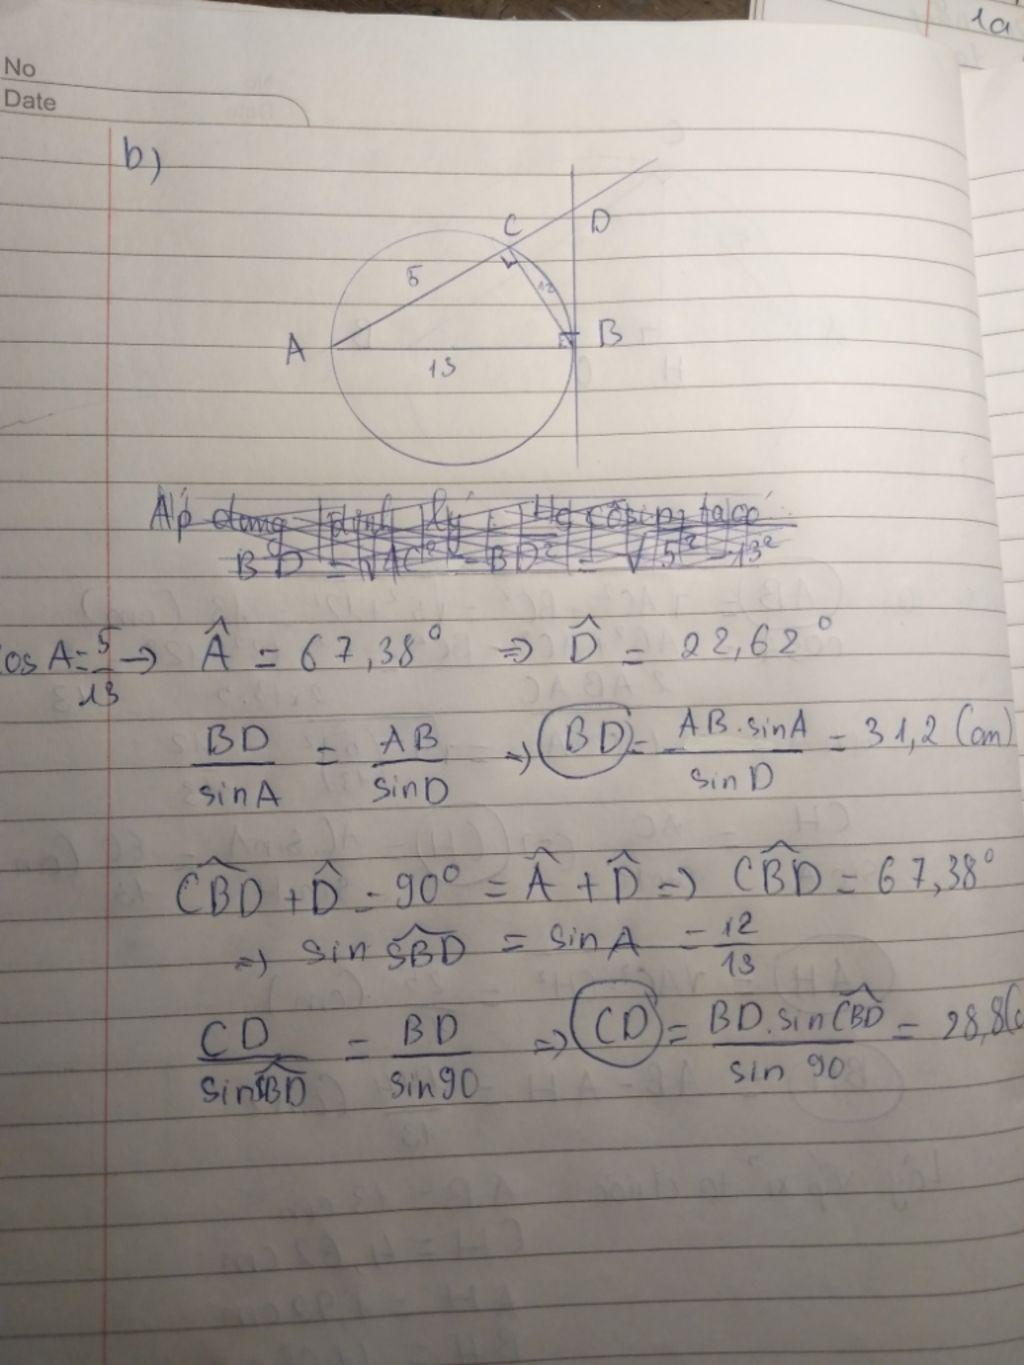 1a
No
Date
b)
C
D
5
12
A
B
13
Áp dụng định lý
BD = √AC² - BD² = √5² - 13²
cos A = 5/13 → Â = 67,38° ⇒ D̂ = 22,62°
BD/sinA = AB/sinD ⇒ BD = AB.sinA/sinD = 31,2 (cm)
CBD̂ + D̂ = 90° = Â + D̂ ⇒ CBD̂ = 67,38°
⇒ sin CBD̂ = sin A = 12/13
CD/sinCBD̂ = BD/sin90 ⇒ CD = BD.sinCBD̂/sin 90 = 28,8(c